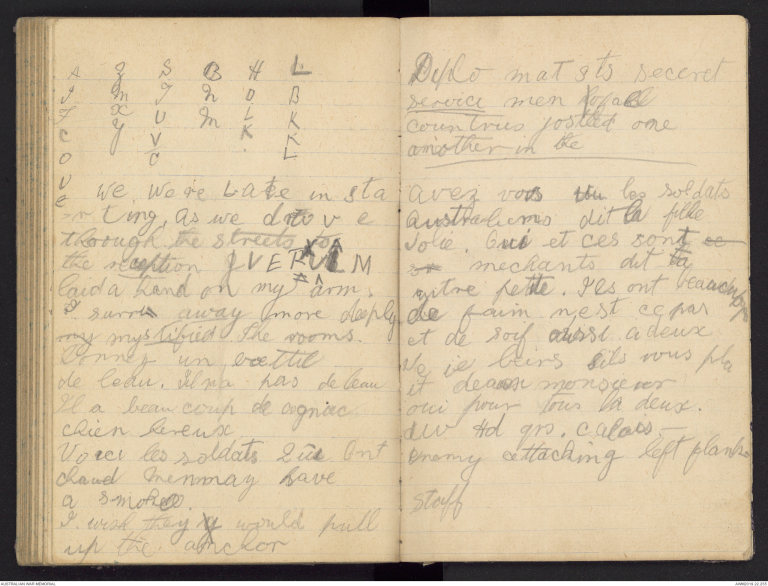 A Z S B H L
I M J N O B
F X U M L K
C Y V K K
O C L
V
e We were Late in sta
rting, As we drove
through the streets to
the reception I V E R U L M
laid a hand on my arm.
I away more deeply
my mystified the rooms.
Donney un
de leau. Il na pas de leau
Il a beau coup de cogniac
chien hereux
Voici les soldats Qui Ont
chaud Menmay have
a smoke.
I wish they would pull
up the anchor
mats secret
service men
countrus jostled one
another in the
avez vous les soldats
australiens dit la fille
Jolie. Oui et ces sont
mechants dit
petite. Ils ont beaucoup
de faim n'est ce pas
et de soif aussi a deux
je beirs sils vous pla
it monsieur
oui pour tous la deux.
Hd qrs. Calais —
Enemy attaching left planks
staff
AUSTRALIAN WAR MEMORIAL